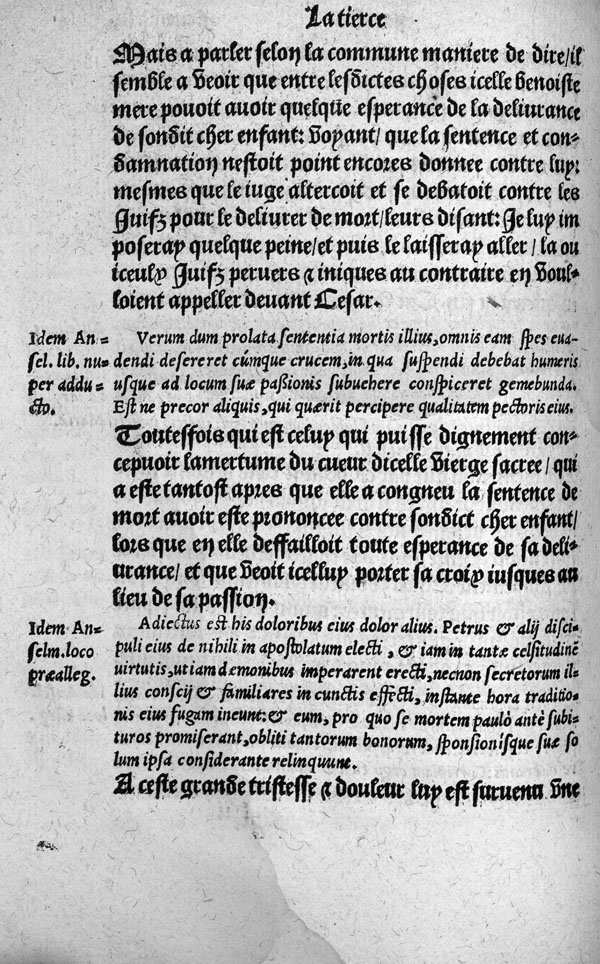 La tierce
Mais a parler selon la commune maniere de dire/il
semble a veoir que entre lesdictes choses icelle benoiste
mere pouoit auoir quelque esperance de la deliurance
de sondit cher enfant: voyant/ que la sentence et con-
damnation nestoit point encores donnee contre luy:
mesmes que le iuge altercoit et se debatoit contre les
Juifz pour le deliurer de mort/leurs disant: Je luy im
poseray quelque peine/et puis le laisseray aller/ la ou
iceulx Juifz peruers & iniques au contraire en voul-
loient appeller deuant Cesar.
Idem An-
sel. lib. nu-
per addu-
cto.
Verum dum prolata sententia mortis illius, omnis eam spes eua-
dendi desereret cúmque crucem, in qua suspendi debebat humeris
usque ad locum suæ paßionis subuehere conspiceret gemebunda.
Est ne precor aliquis, qui quærit percipere qualitatem pectoris eius.
Toutesfois qui est celuy qui puisse dignement con-
cepuoir lamertume du cueur dicelle vierge sacree/ qui
a este tantost apres que elle a congneu la sentence de
mort auoir este prononcee contre sondict cher enfant/
lors que en elle deffailloit toute esperance de sa deli-
urance/ et que veoit icelluy porter sa croix iusques au
lieu de sa passion.
Idem An-
selm. loco
præalleg.
Adiectus est his doloribus eius dolor alius. Petrus & alij disci-
puli eius de nihili in apostolatum electi, & iam in tantæ celsitudinē
virtutis, ut iam dæmonibus imperarent erecti, necnon secretorum il-
lius conscij & familiares in cunctis effecti, instante hora traditio-
nis eius fugam ineunt: & eum, pro quo se mortem paulò antè subi-
turos promiserant, obliti tantorum bonorum, sponsionísque suæ so
lum ipsa considerante relinquunt.
A ceste grande tristesse & douleur luy est suruenu vne